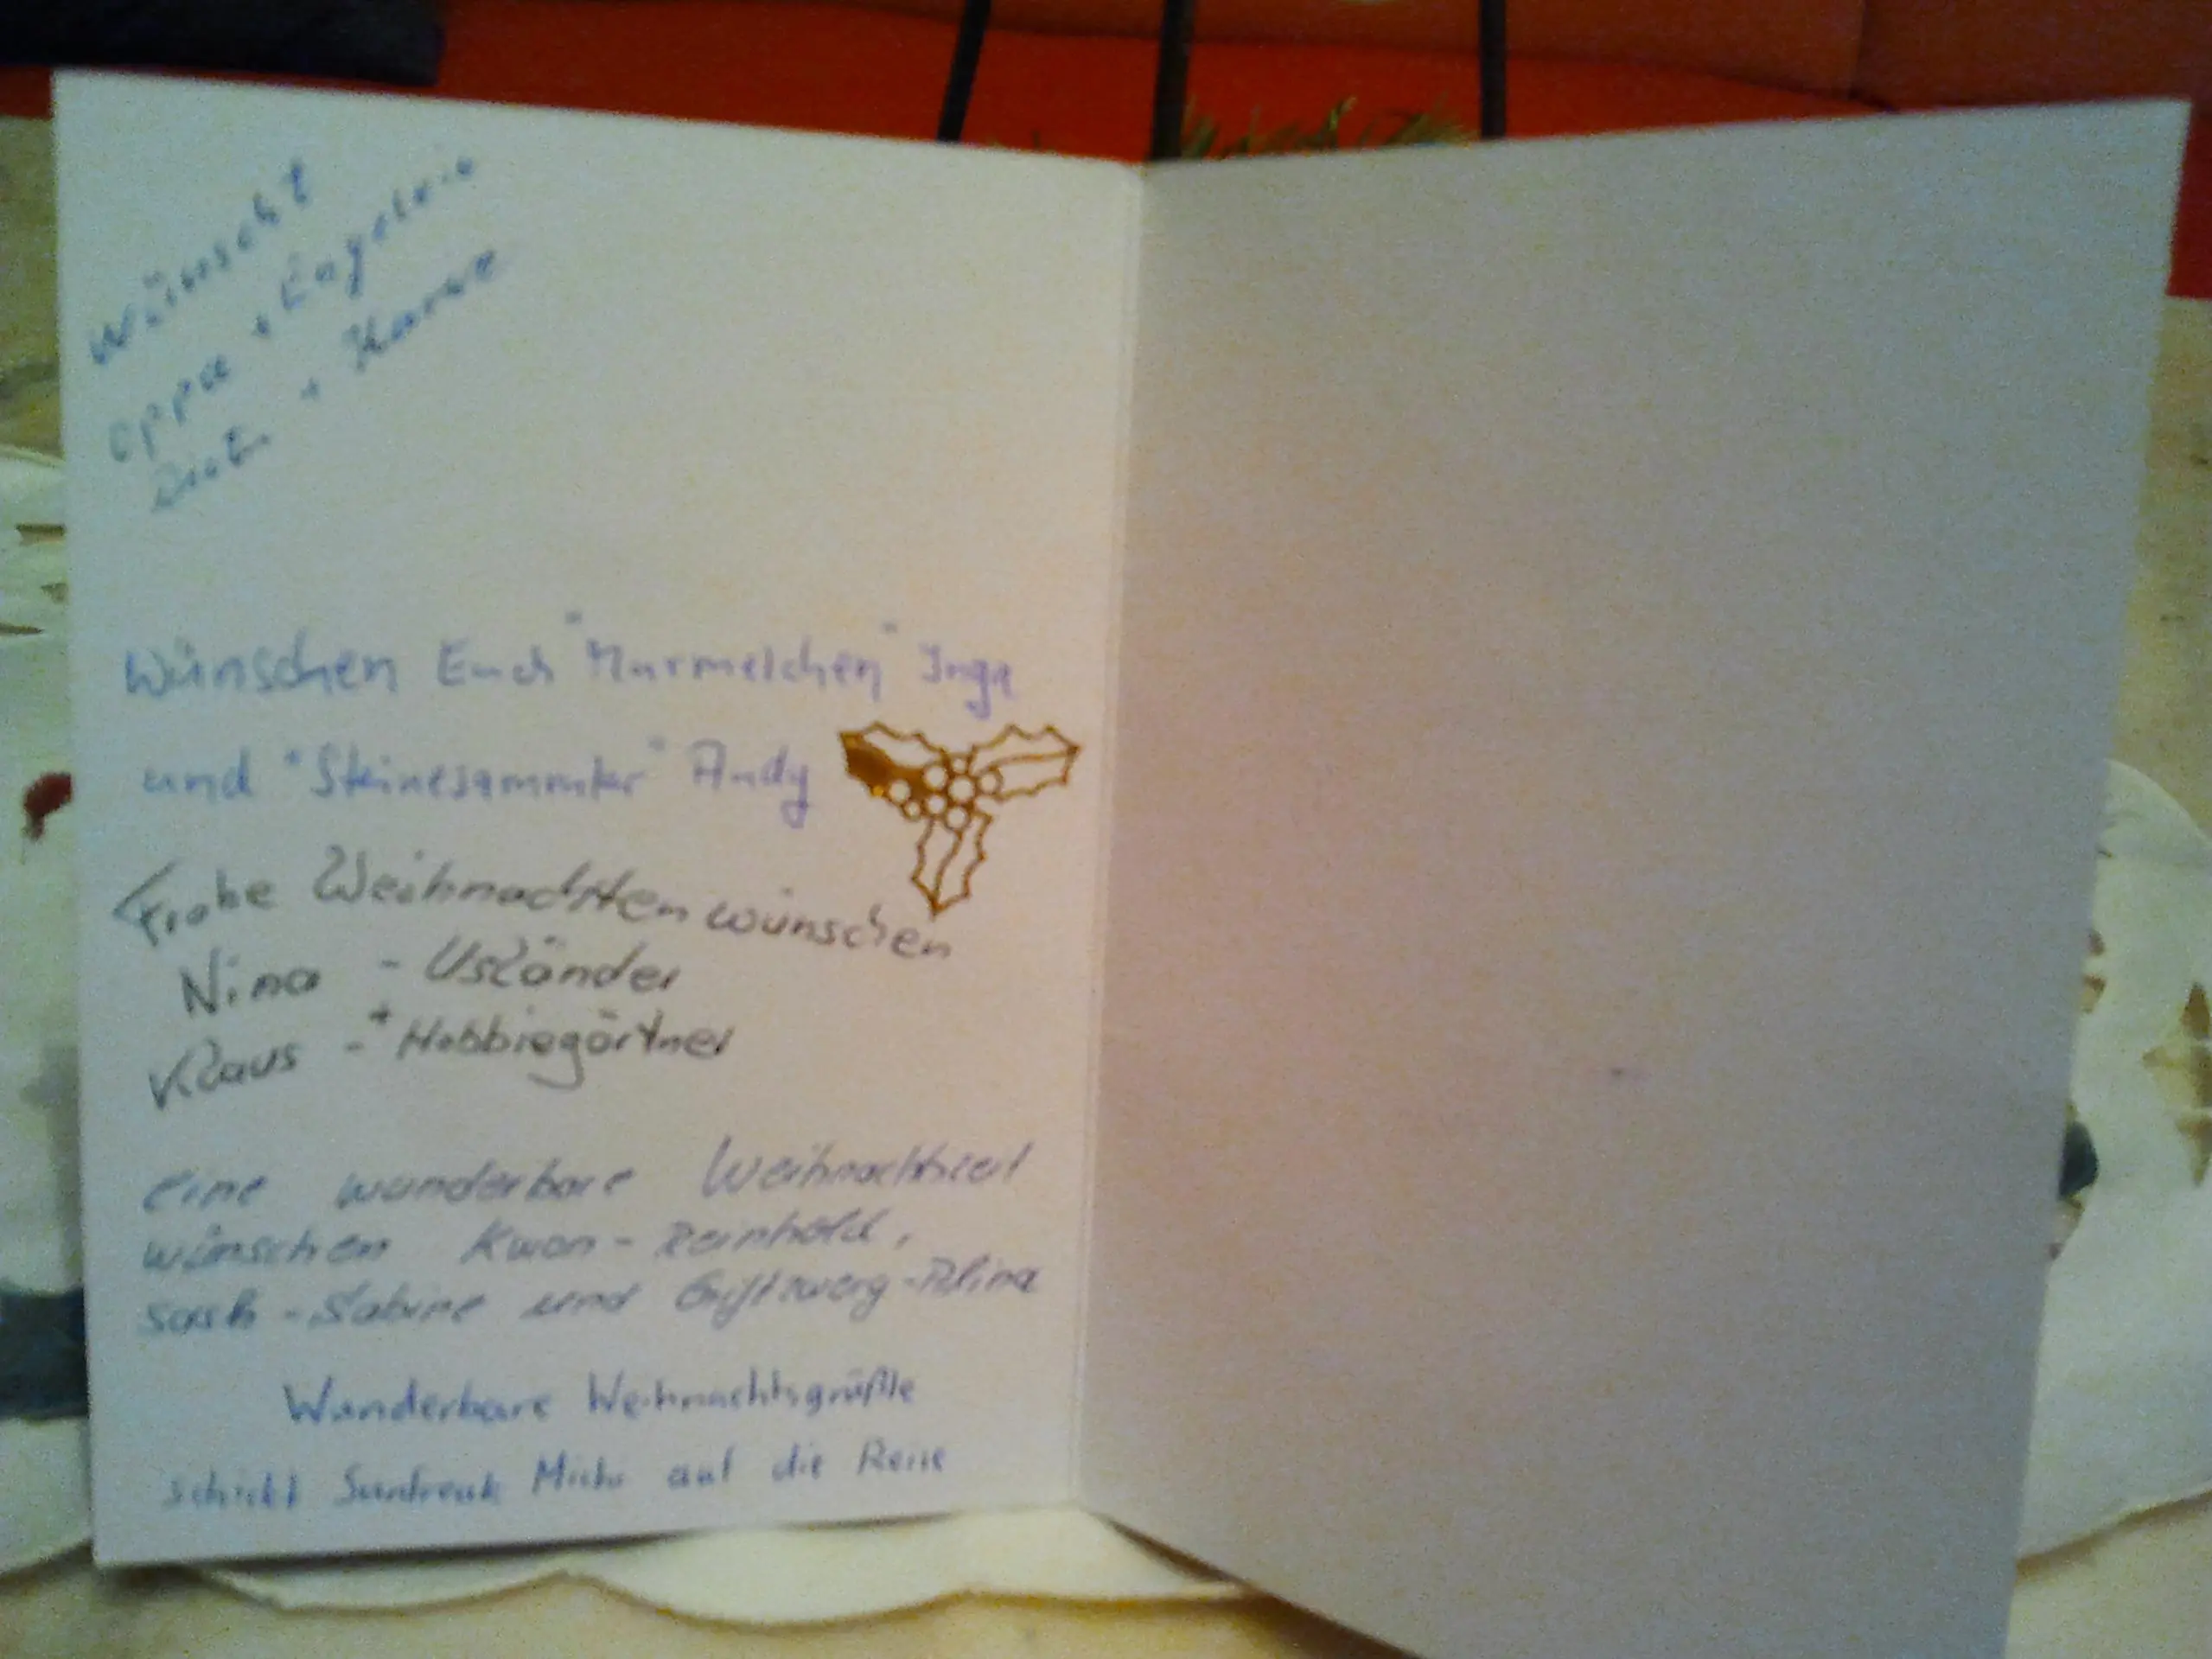 wünscht
+ Engelein
+
Wünschen Euch "Murmelchen" Inga
und "Steinesammler" Andy
Frohe Weihnachten wünschen
Nina - Usländer
Klaus - + Hobbiegärtner
eine wunderbare Weihnachtszeit
wünschen Kwon - Reinhold,
- Sabine und Giftzwerg - Alina
Wunderbare Weihnachtsgrüßle
schickt Sunfreak Micha auf die Reise